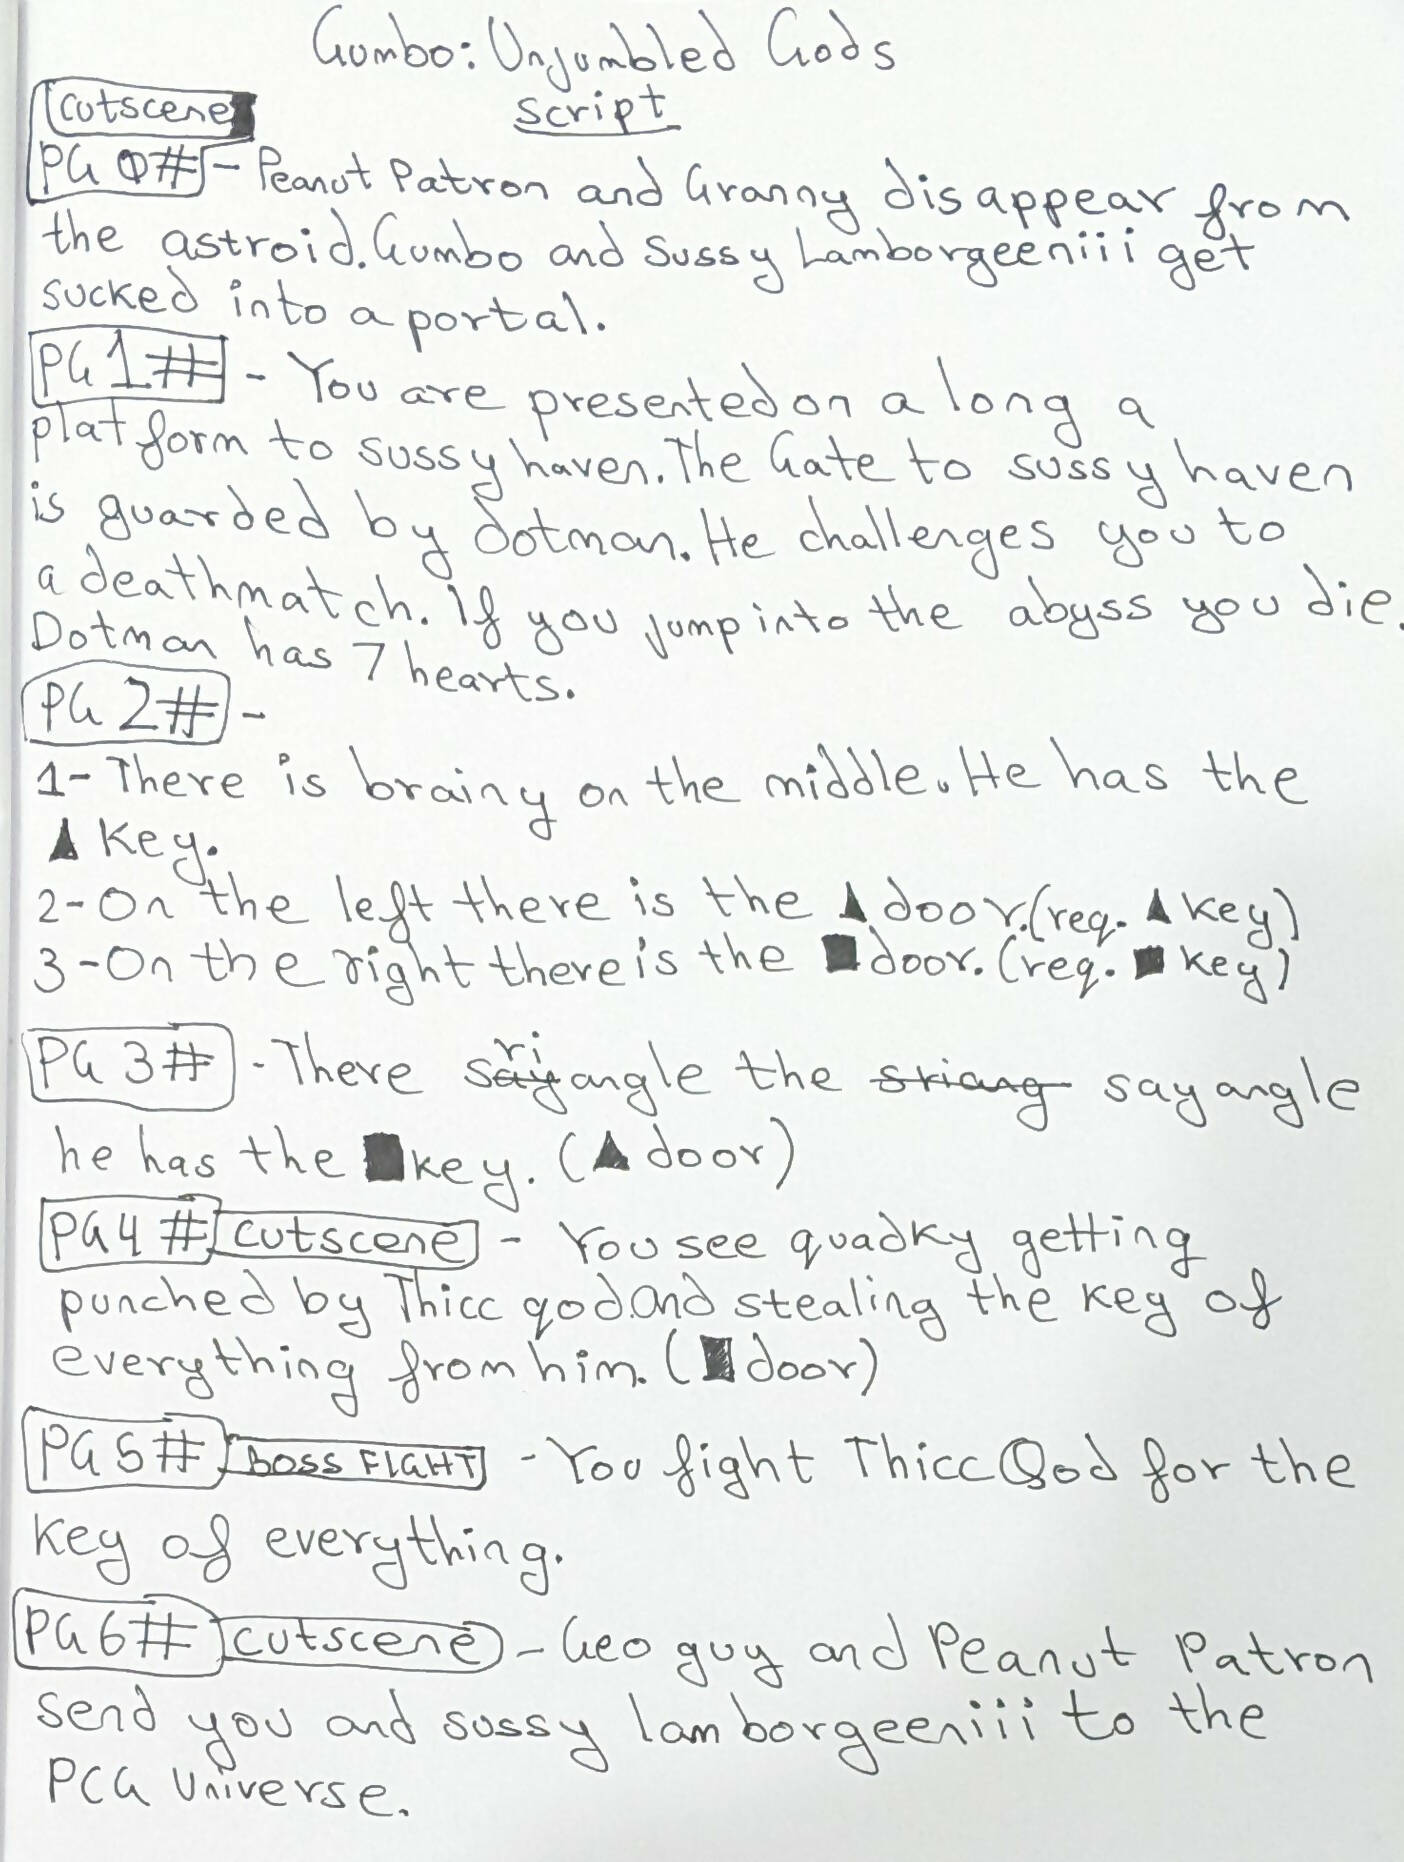 Gumbo: Unjumbled Gods
script
cutscene
PG 0# - Peanut Patron and Granny disappear from
the astroid. Gumbo and Sussy Lamborgeeniii get
sucked into a portal.
PG 1# - You are presented on a long a
platform to sussy haven. The Gate to sussy haven
is guarded by dotman. He challenges you to
a deathmatch. If you jump into the abyss you die.
Dotman has 7 hearts.
PG 2# -
1- There is brainy on the middle. He has the
▲ key.
2- On the left there is the ▲ door. (req. ▲ key)
3 - On the right there is the ■ door. (req. ■ key)
PG 3# - There sriangle the sayangle
he has the ■ key. (▲ door)
PG 4# cutscene - You see quadky getting
punched by Thicc qod. and stealing the key of
everything from him. (■ door)
PG 5# BOSS FIGHT - You fight Thicc Qod for the
key of everything.
PG 6# cutscene - Geo guy and Peanut Patron
send you and sussy lamborgeeniii to the
PCG Universe.